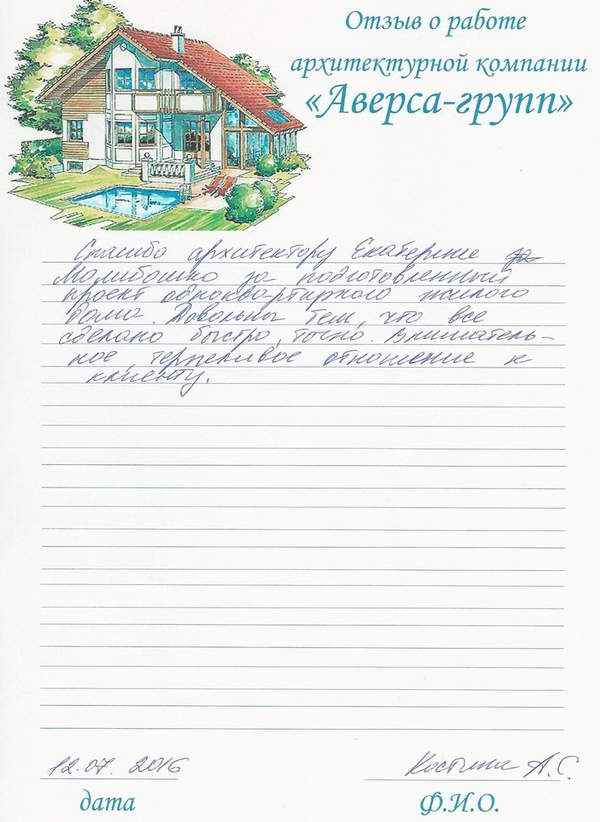 Отзыв о работе
архитектурной компании
«Аверса-групп»
Спасибо архитектору Екатерине за
Молибошко за подготовленный
проект одноквартирного жилого
дома. Довольны тем, что все
сделано быстро, точно. Вниматель-
ное, терпеливое отношение к
клиенту.
12.07. 2016
Костина А.С.
дата
Ф.И.О.